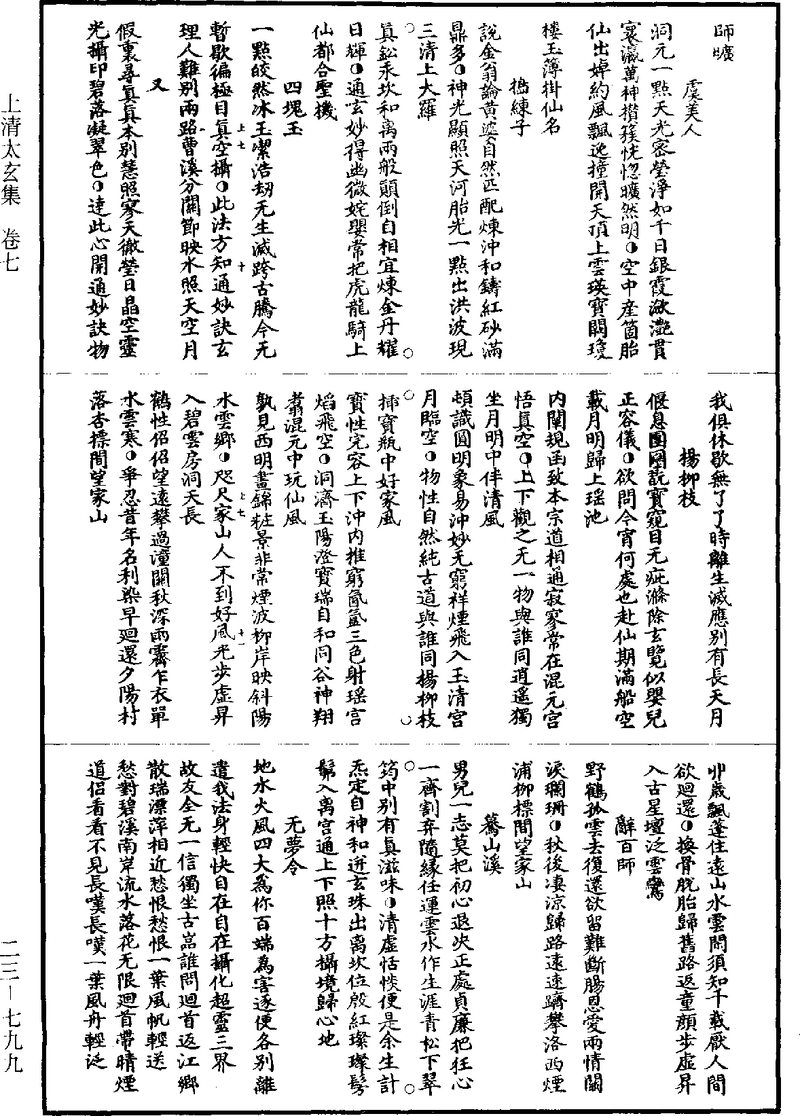 上清太玄集　卷七
二三—七九九
師曠
虞美人
洞元一點天光密瑩淨如千日銀霞瀲灩貫
寰瀛萬神攢簇恍惚曠然明○空中產箇胎
仙出婥約風飄逸撞開天頂上雲瑛寶闕瓊
樓玉簿掛仙名
搗練子
說金翁論黃婆自然匹配煉沖和鑄紅砂滿
鼎多○神光顯照天河胎光一點出洪波現
三清上大羅
真鉛汞坎和离兩般顛倒自相宜煉金丹耀
日輝○通玄妙得幽微姹嬰常把虎龍騎上
仙都合聖機
四塊玉
一點皎然冰玉潔浩劫无生滅跨古騰今无
暫歇徧極目真空攝○此法方知通妙訣玄
理人難別兩路曹溪分關節映水照天空月
又
假裏尋真真本別慧照寥天徹瑩日晶空靈
光攝印碧落凝翠色○達此心開通妙訣物
我俱休歇無了了時離生滅應別有長天月
楊柳枝
偃息團團翫寶窺目无疵滌除玄覽似嬰兒
正容儀○欲問今宵何處也赴仙期滿船空
載月明歸上瑶池
內闡規函致本宗道相通寂寥常在混元宮
悟真空○上下觀之无一物與誰同逍遥獨
坐月明中伴清風
頓識圓明象易沖妙无窮祥煙飛入玉清宮
月臨空○物性自然純古道與誰同楊柳枝
揷寶瓶中好家風
寶性完容上下沖內推窮氤氳三色射瑶宮
焰飛空○洞濟玉陽澄寶瑞自和同谷神翔
翥混元中玩仙風
孰見西明畫錦粧景非常煙波柳岸映斜陽
水雲鄉○咫尺家山人不到好風光步虛昇
入碧雲房洞天長
鶴性侶侶望遠攀過潼關秋深雨霽乍衣單
水雲寒○爭忍昔年名利染早廻還夕陽村
落杏標間望家山
丱歲飄蓬住遠山水雲間須知千載厭人間
欲廻還○換骨脫胎歸舊路返童顏步虛昇
入古星壇泛雲鸞
辭百師
野鶴孤雲去復還欲留難斷腸恩愛兩情關
淚斕珊○秋後凄涼歸路遠遠躋攀洛西煙
浦柳標間望家山
驀山溪
男兒一志莫把初心退汝正處貞廉把狂心
一齊割弃隨緣任運雲水作生涯青松下翠
筠中別有真滋味○清虛恬惔便是余生計
炁定自神和迸玄珠出离坎位殷紅璨璨髣
髴入离宮通上下照十方攝境歸心地
无夢令
地水火風四大為你百端為害逐便各別離
遣我法身輕快自在自在攝化超靈三界
故友全无一信獨坐古嵓誰問廻首返江鄉
散瑞漂萍相近愁恨愁恨一葉風帆輕送
愁對碧溪南岸流水落花无限廻首帶晴煙
道侶看看不見長嘆長嘆一葉風舟輕泛